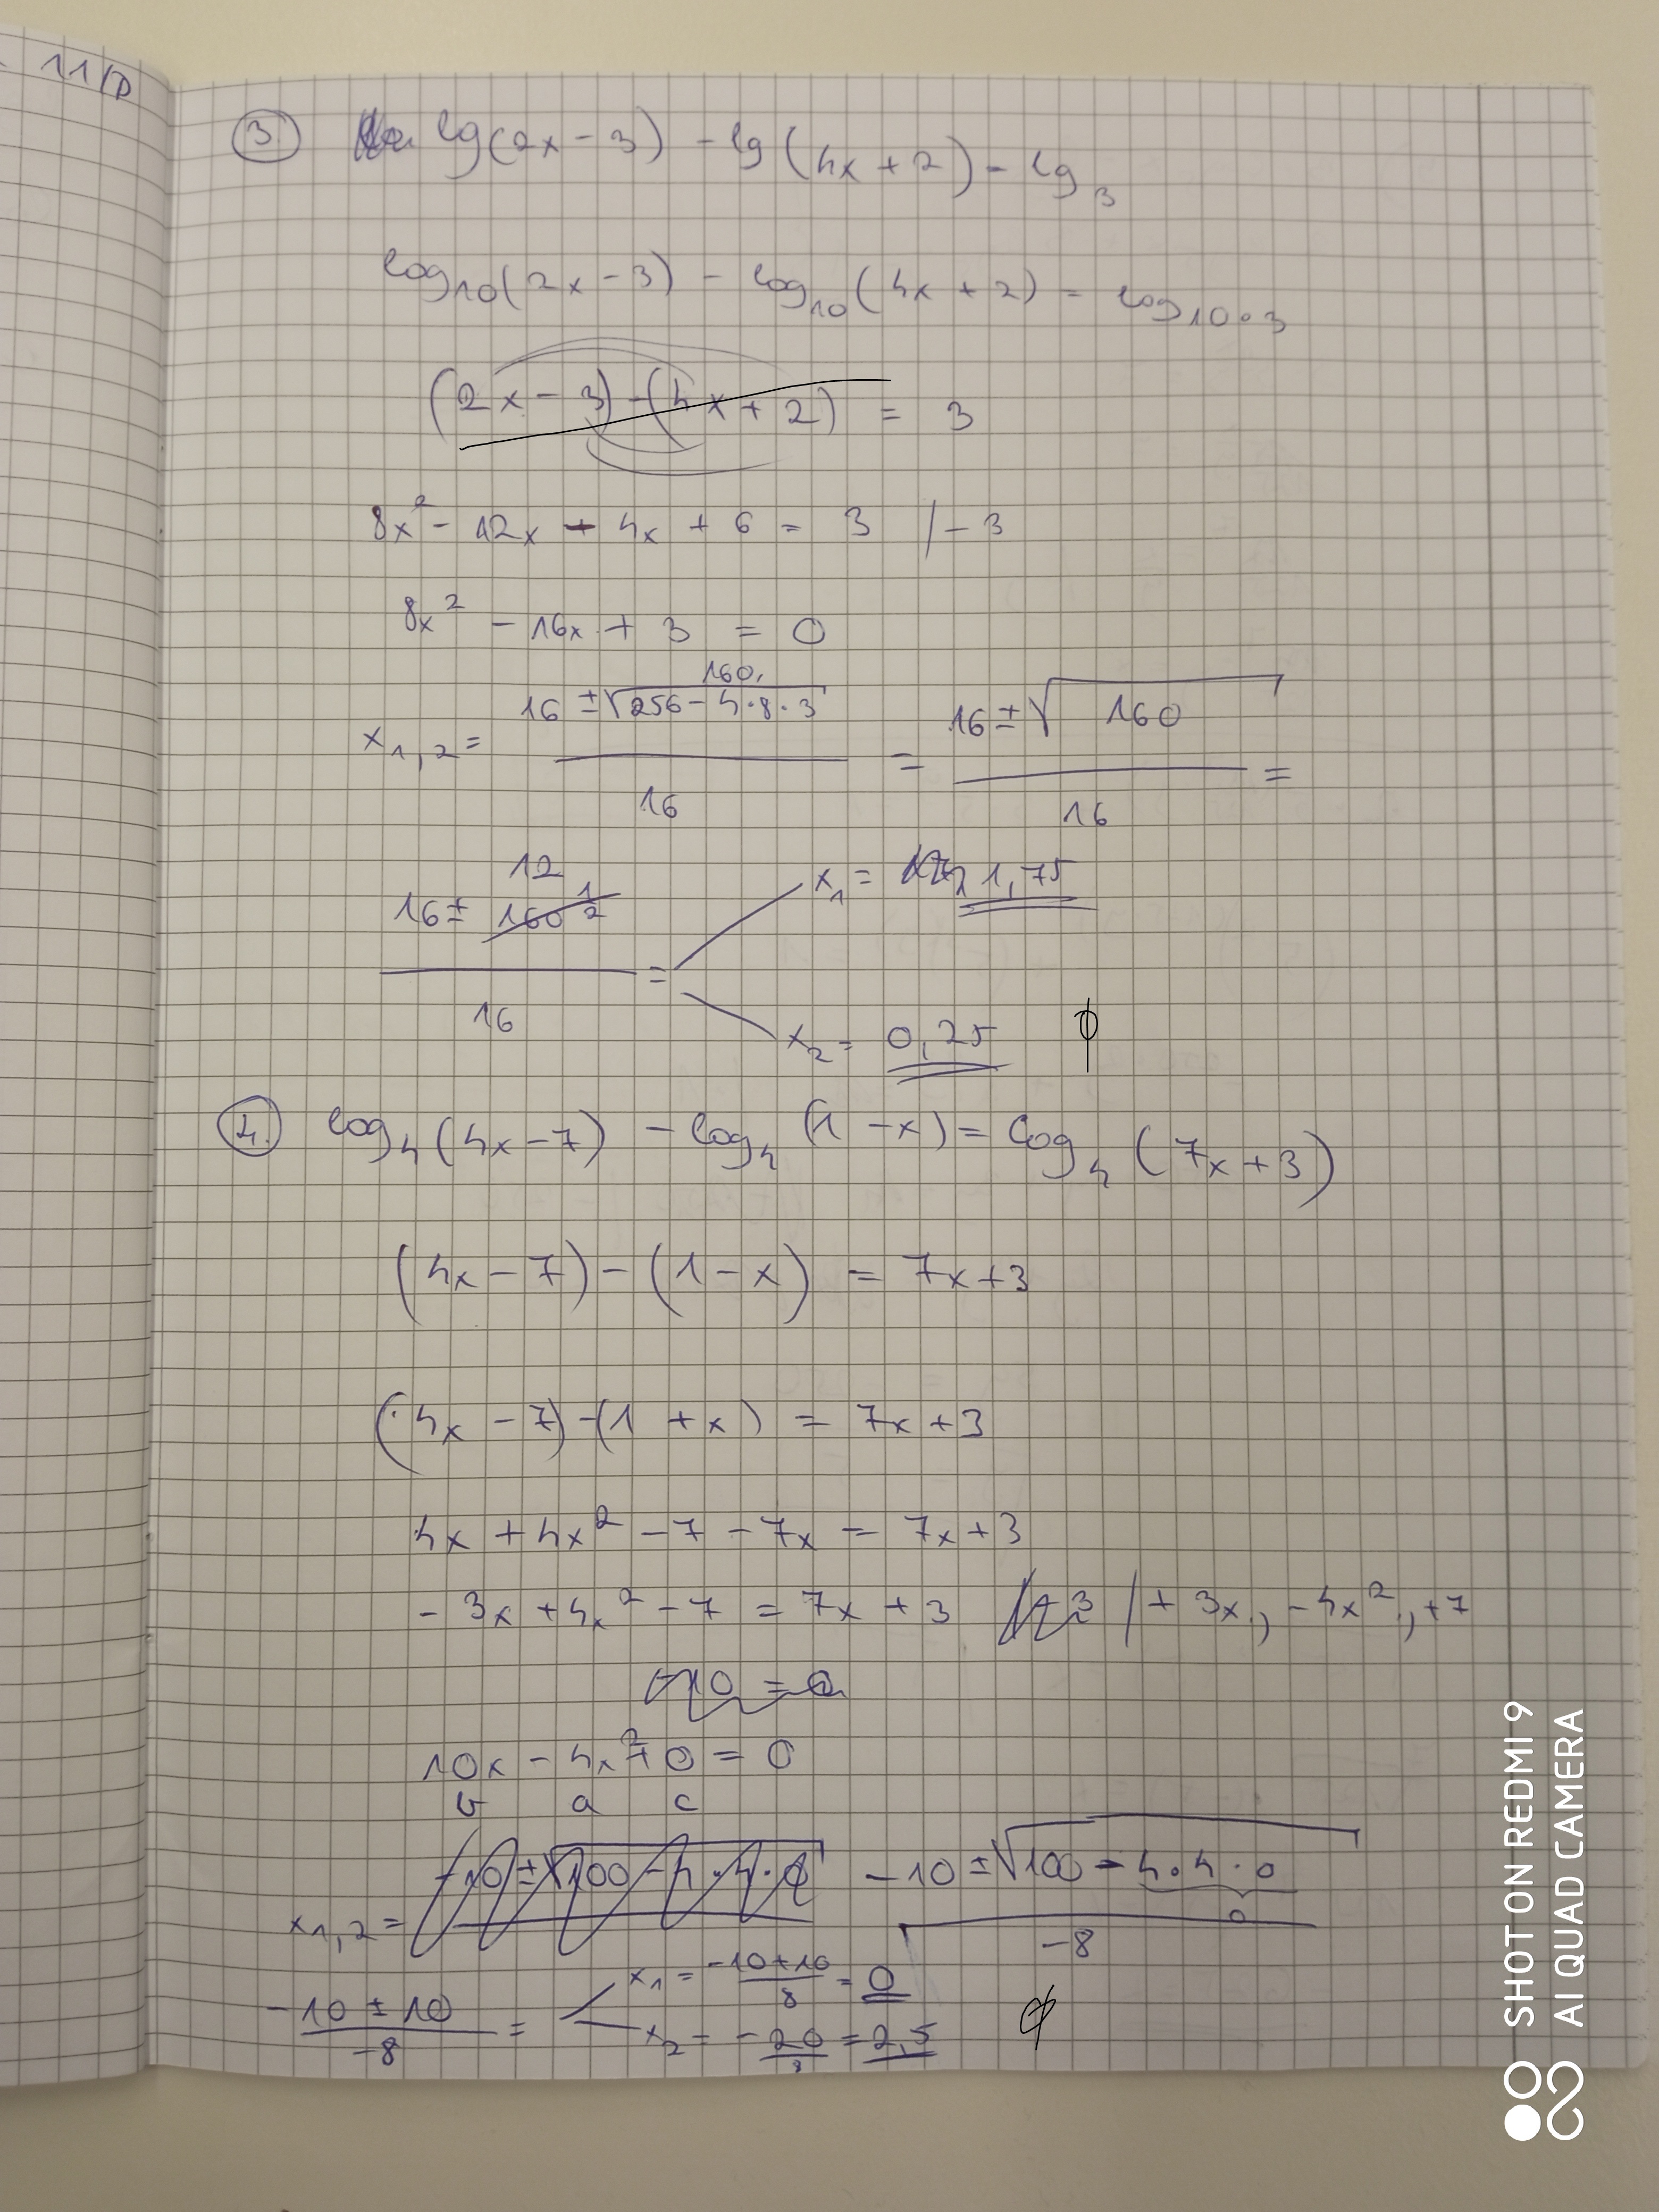 11/D
3. lg(2x-3) - lg(4x+2) = lg 3
log₁₀(2x-3) - log₁₀(4x+2) = log₁₀ · 3
(2x-3)-(4x+2) = 3
8x² - 12x - 4x + 6 = 3 /-3
8x² - 16x + 3 = 0
160
x₁,₂ = (16 ± √(256-4·8·3))/16 = (16 ± √160)/16 =
12
(16 ± 160^(1/2))/16 =
x₁ = 1,75
x₂ = 0,25 ϕ
4. log₄(4x-7) - log₄(1-x) = log₄(7x+3)
(4x-7)-(1-x) = 7x+3
(4x-7)-(1+x) = 7x+3
4x + 4x² - 7 - 7x = 7x+3
-3x + 4x² - 7 = 7x + 3 /+3x, -4x², +7
10x - 4x² + 0 = 0
b a c
x₁,₂ = (-10 ± √(100 - 4·4·0))/-8
0
(-10 ± 10)/-8 =
x₁ = (-10+10)/8 = 0
x₂ = -20/8 = 2,5 ϕ
SHOT ON REDMI 9
AI QUAD CAMERA